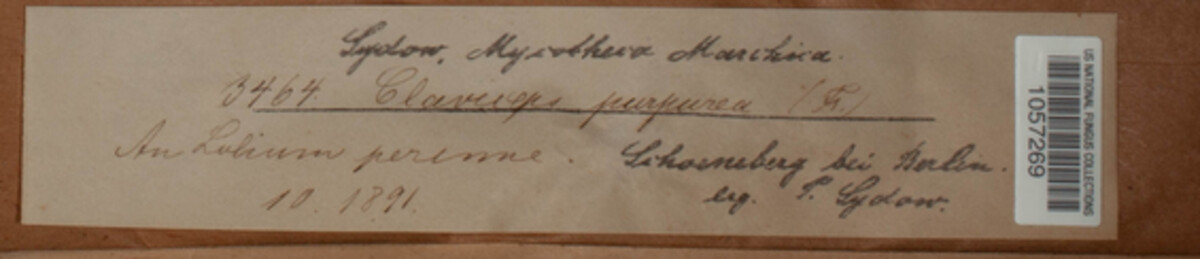 Sydow, Mycotheca Marchica.
3464. Claviceps purpurea (Fr.)
An Lolium perenne. Schoeneberg bei Berlin.
10. 1891. leg. P. Sydow.
US NATIONAL FUNGUS COLLECTIONS
1057269